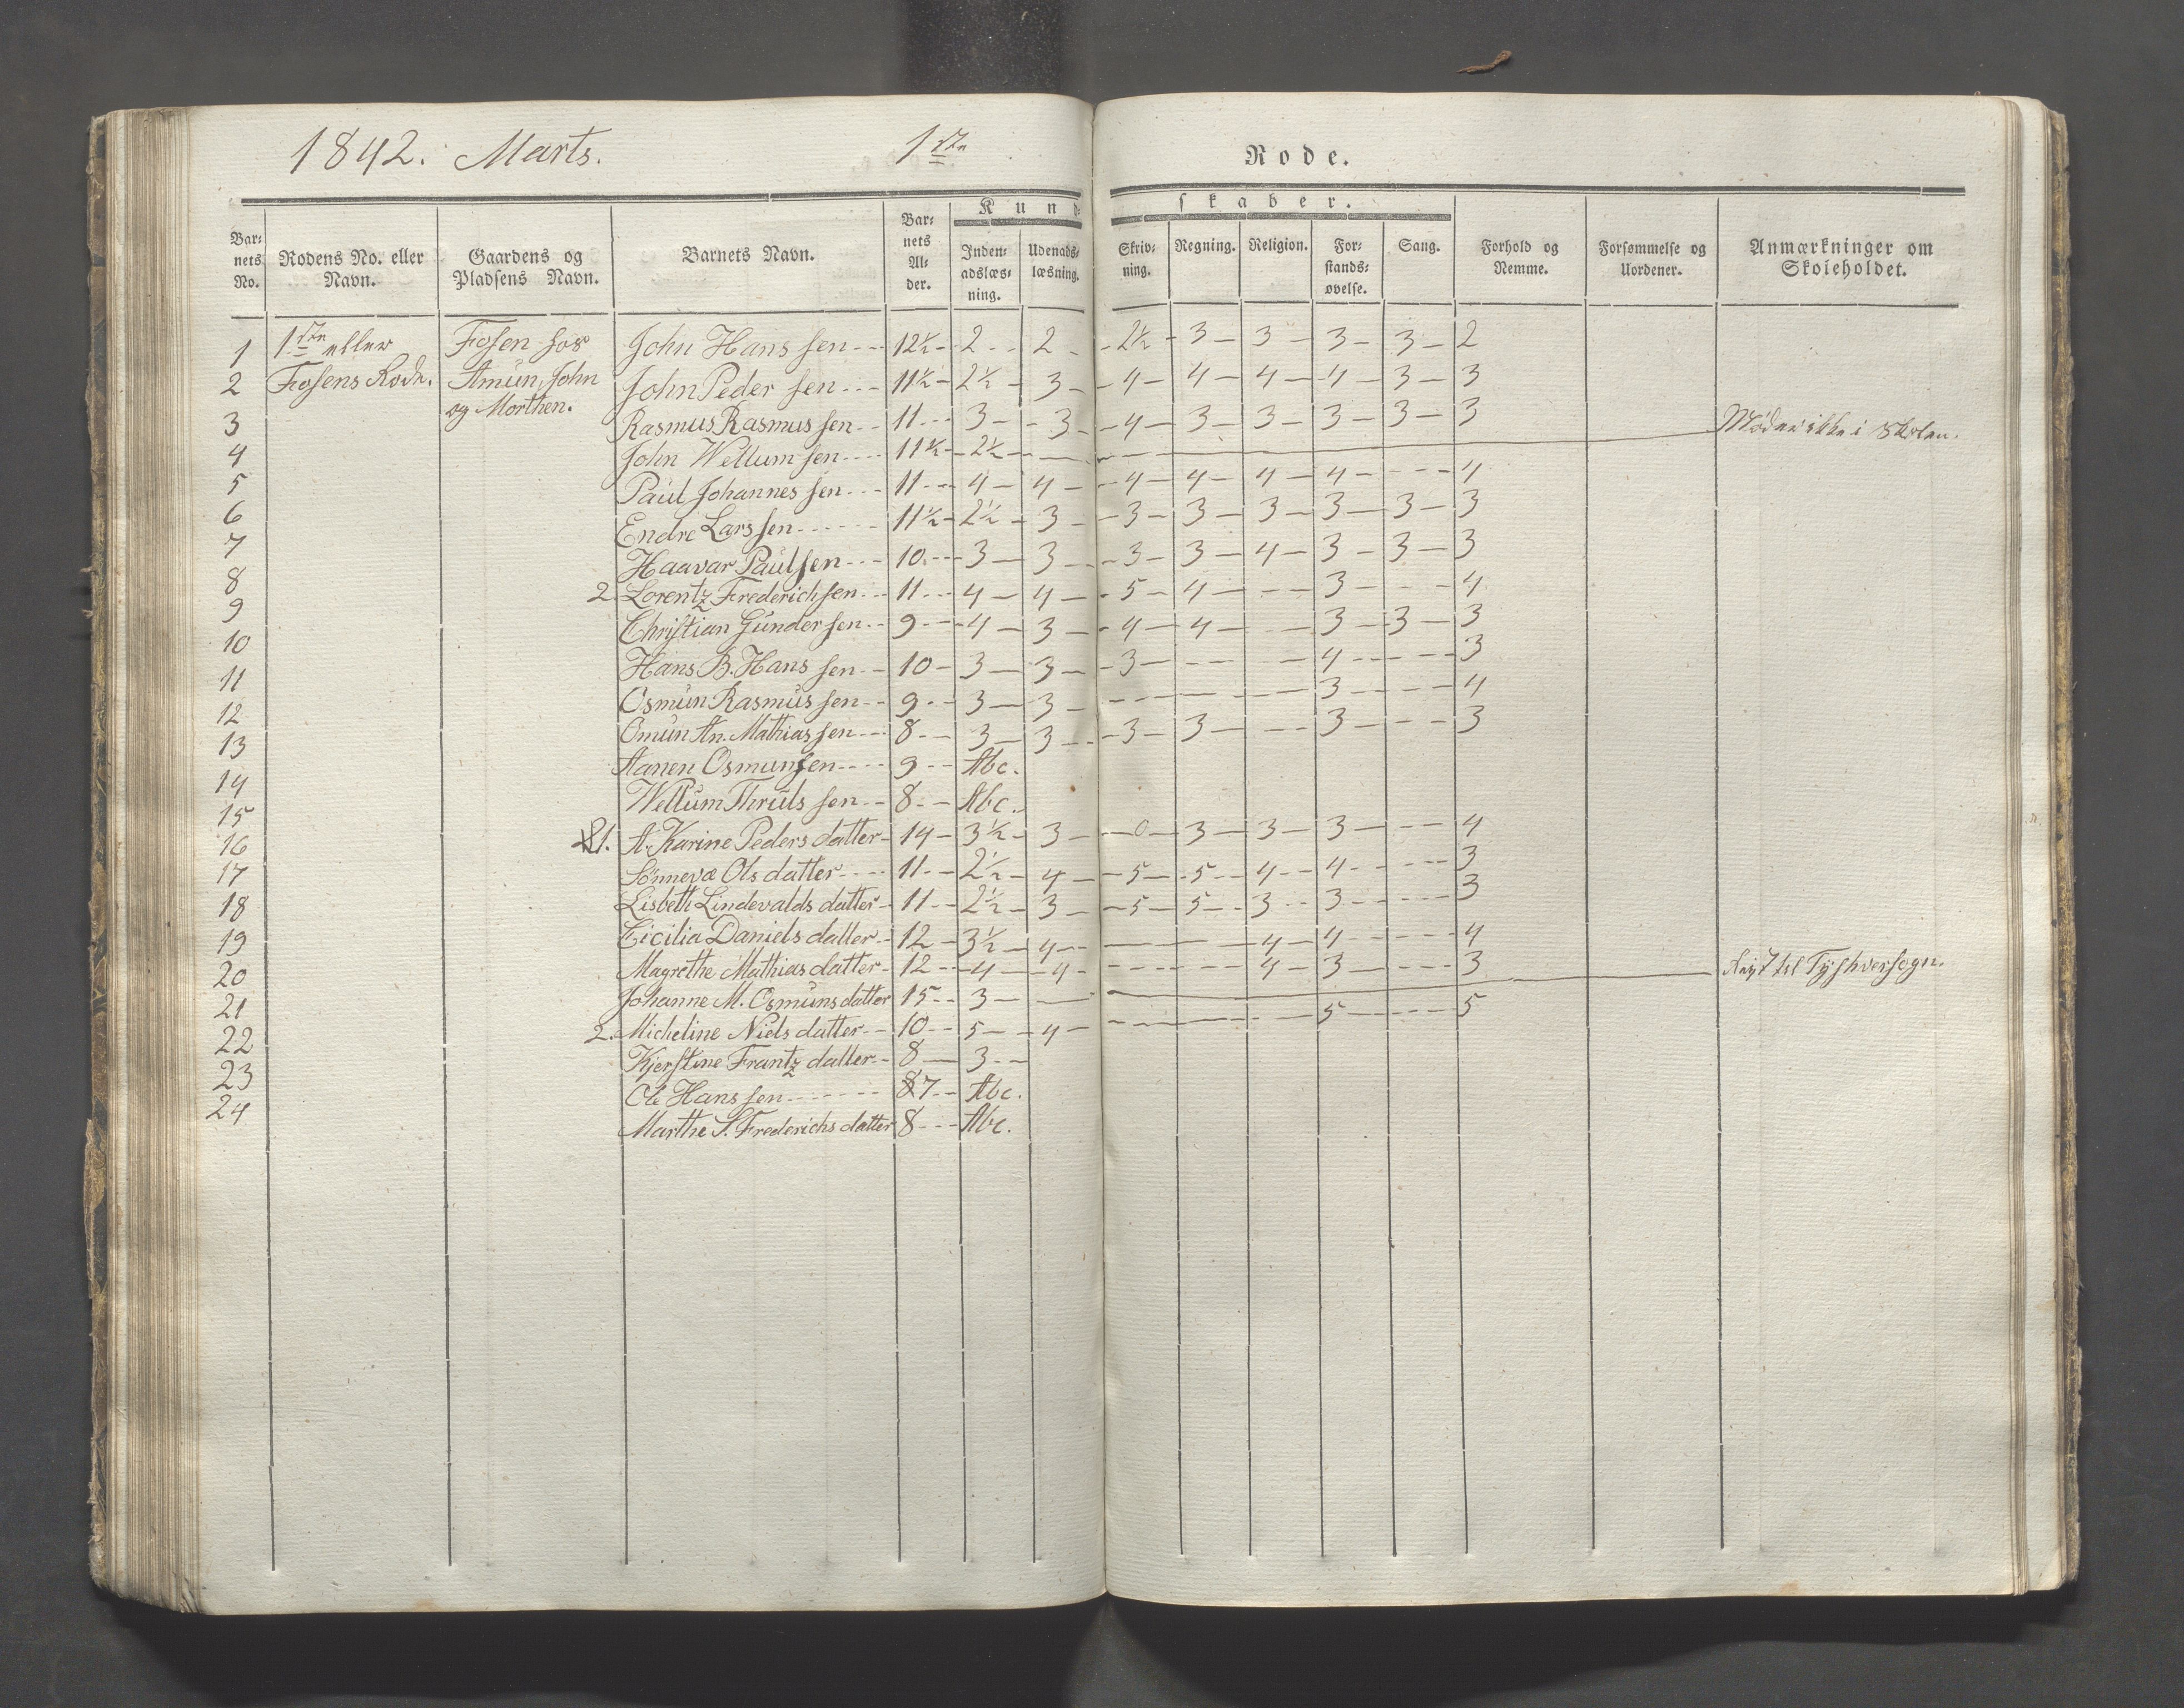 1842. Marts. 1ste Rode.
Kund- skaber.
Barnets No. Rodens No. eller Navn. Gaardens og Pladsens Navn. Barnets Navn. Barnets Alder. Indenadslæsning. Udenadslæsning. Skrivning. Regning. Religion. Forstandsøvelse. Sang. Forhold og Nemme. Forsømmelse og Uordener. Anmærkninger om Skoleholdet.
1 1ste eller Fosen hos John Hanssen 12½ 2 2 2½ 3 3 3 3 2
2 Fosens Rode. Amün, John John Pedersen 11½ 2½ 3 4 4 4 4 3 3
3 og Morthen. Rasmus Rasmussen 11 3 3 4 3 3 3 3 3
4 John Wellumsen 11½ 2½ Møder ikke i Skolen.
5 Paul Johannessen 11 4 4 4 4 4 4 4
6 Endre Larssen 11½ 2½ 3 3 3 3 3 3 3
7 Haavar Paulsen 10 3 3 3 3 4 3 3 3
8 2. Lorentz Frederichsen 11 4 4 5 4 3 4
9 Christian Gundersen 9 4 3 4 4 3 3 3
10 Hans B. Hanssen 10 3 3 3 4 3
11 Osmün Rasmussen 9 3 3 3 4
12 Omün An. Mathiassen 8 3 3 3 3 3 3
13 Aanen Osmunsen 9 Abc.
14 Wellum Thrulssen 8 Abc.
15 1. A. Karine Pedersdatter 14 3½ 3 0 3 3 3 4
16 Sönnevæ Olsdatter 11 2½ 4 5 5 4 4 3
17 Lisbeth Lindevaldsdatter 11 2½ 3 5 5 3 3 3
18 Cicilia Danielsdatter 12 3½ 4 4 4 4
19 Magrethe Mathiasdatter 12 4 4 4 3 3
20 Johanne M. Osmunsdatter 15 3 til Tyshversogn.
21 2. Micheline Nielsdatter 10 5 4 5 5
22 Kjerstine Frantzdatter 8 3
23 Ole Hanssen 7 Abc.
24 Marthe S. Frederichsdatter 8 Abc.